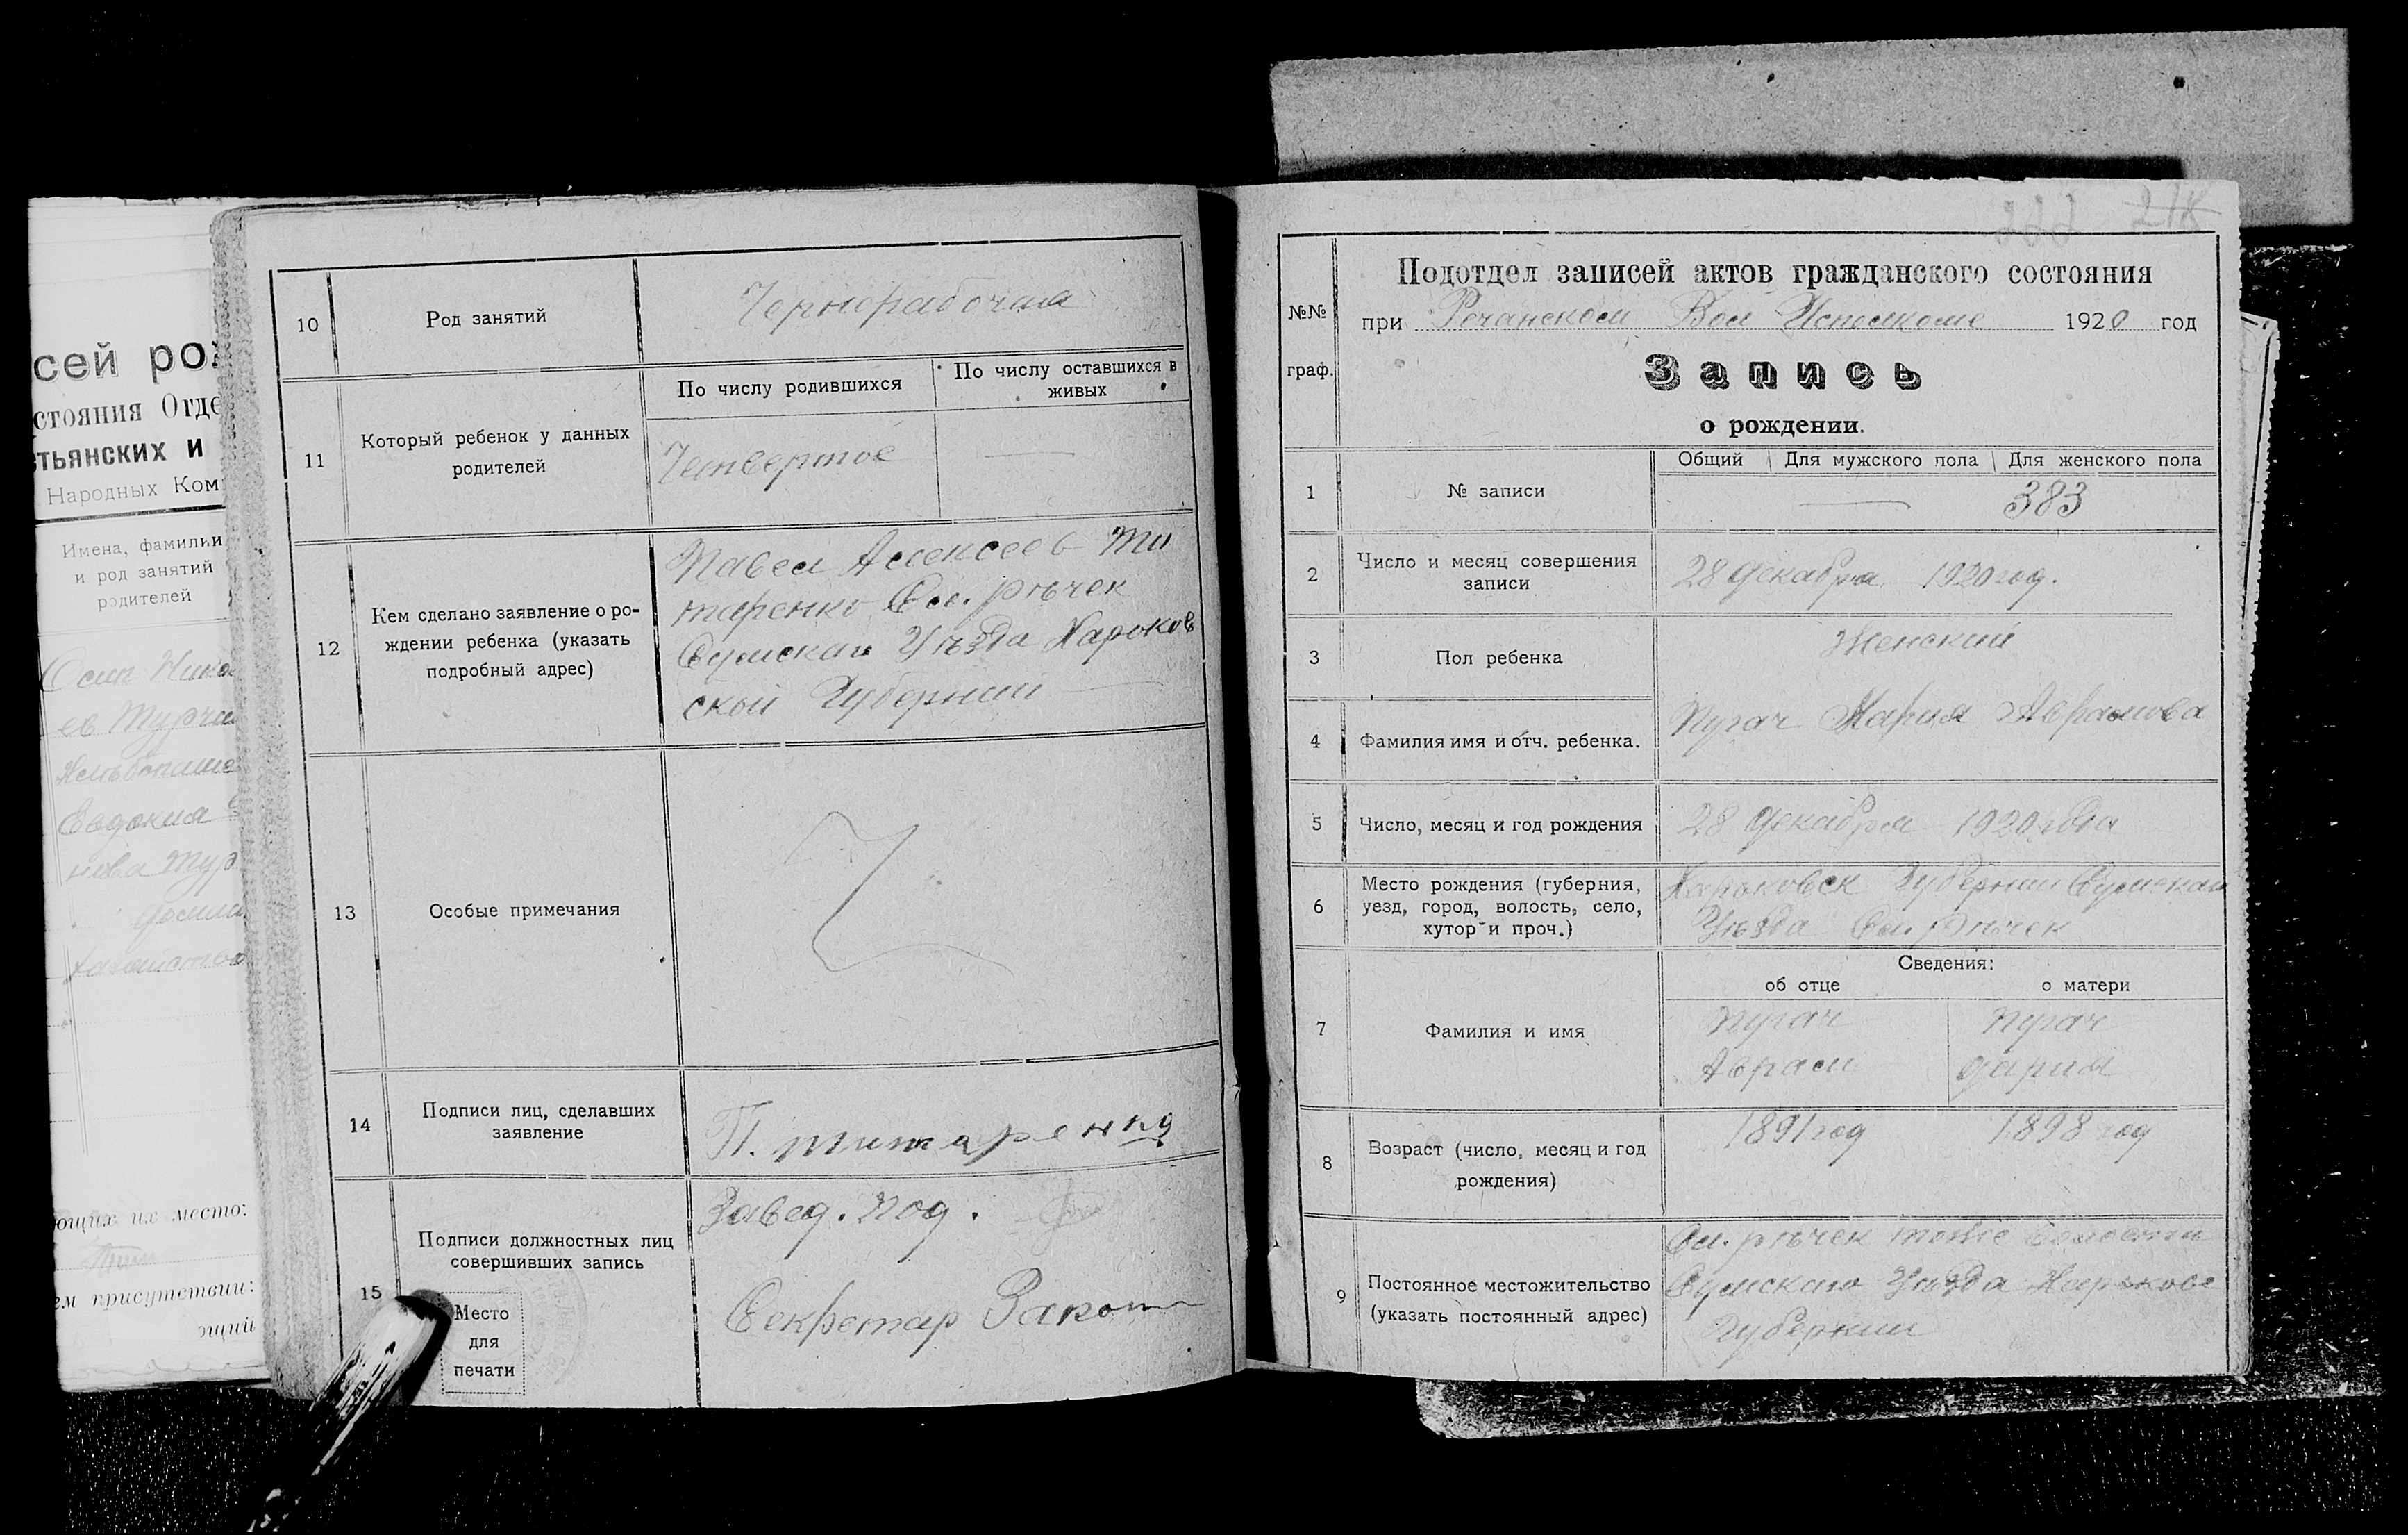 сей рож
стояния Отде
стьянских и
Народных Ком
Имена, фамилии
и род занятий
родителей
Осип Нико
ев Турчи
Хлебопаше
Евдокия
нова Тур
домаш
хозяйство
ющих их место:
ем присутствии:
ющий
10
Род занятий
Чернорабочий
11
Который ребенок у данных
родителей
По числу родившихся
По числу оставшихся в
живых
Четвертое —
12
Кем сделано заявление о ро-
ждении ребенка (указать
подробный адрес)
Павел Алексеев Ти
таренко Сл. Рѣчек
Сумскаго Уѣзда Харьков
ской Губернии —
13
Особые примечания
14
Подписи лиц, сделавших
заявление
П. Титаренко
15
Подписи должностных лиц
совершивших запись
Место
для
печати
Завед. Под.
Секретар
222 218
№№
граф.
Подотдел записей актов гражданского состояния
при Речанском Вол Исполкоме 1920 год
Запись
о рождении.
1
№ записи
Общий Для мужского пола Для женского пола
— 383
2
Число и месяц совершения
записи
28 Декабря 1920 год.
3
Пол ребенка
Женский
4
Фамилия имя и отч. ребенка.
Пугач Мария Аврамова
5
Число, месяц и год рождения
28 Декабря 1920 года
6
Место рождения (губерния,
уезд, город, волость, село,
хутор и проч.)
Харьковск Губернии Сумскаго
Уѣзда Сл. Рѣчек
7
Фамилия и имя
Сведения:
об отце
о матери
Пугач Пугач
Аврам Дария
8
Возраст (число, месяц и год
рождения)
1891 год 1898 год
9
Постоянное местожительство
(указать постоянный адрес)
Сл. Рѣчек тоже волости
Сумскаго Уѣзда Харьков
Губернии